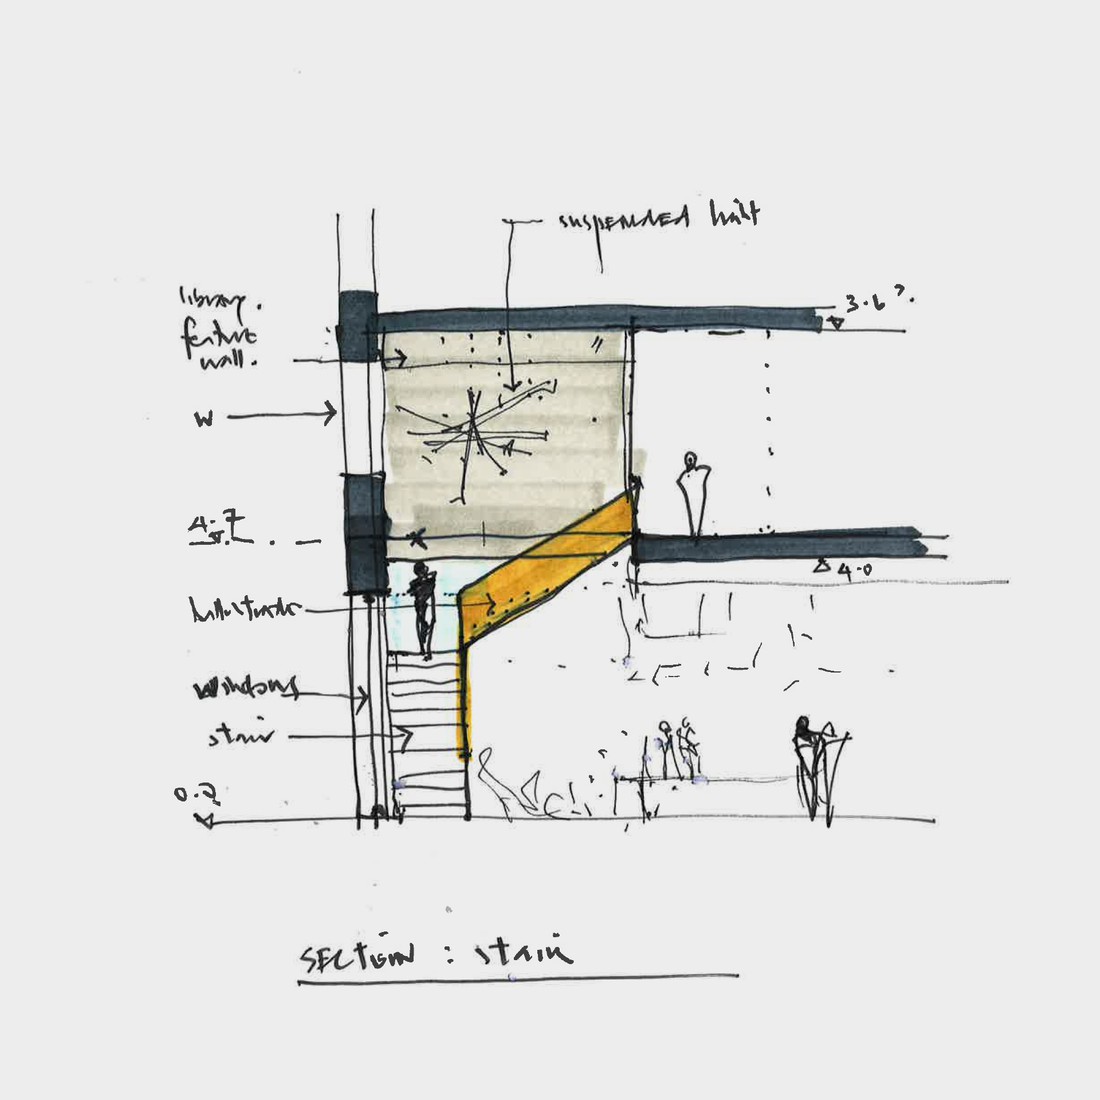 suspended light
library.
feature
wall.
3.6?.
W
4.7
4.0
ballustrade
windows
stair
0.0
SECTION : stair